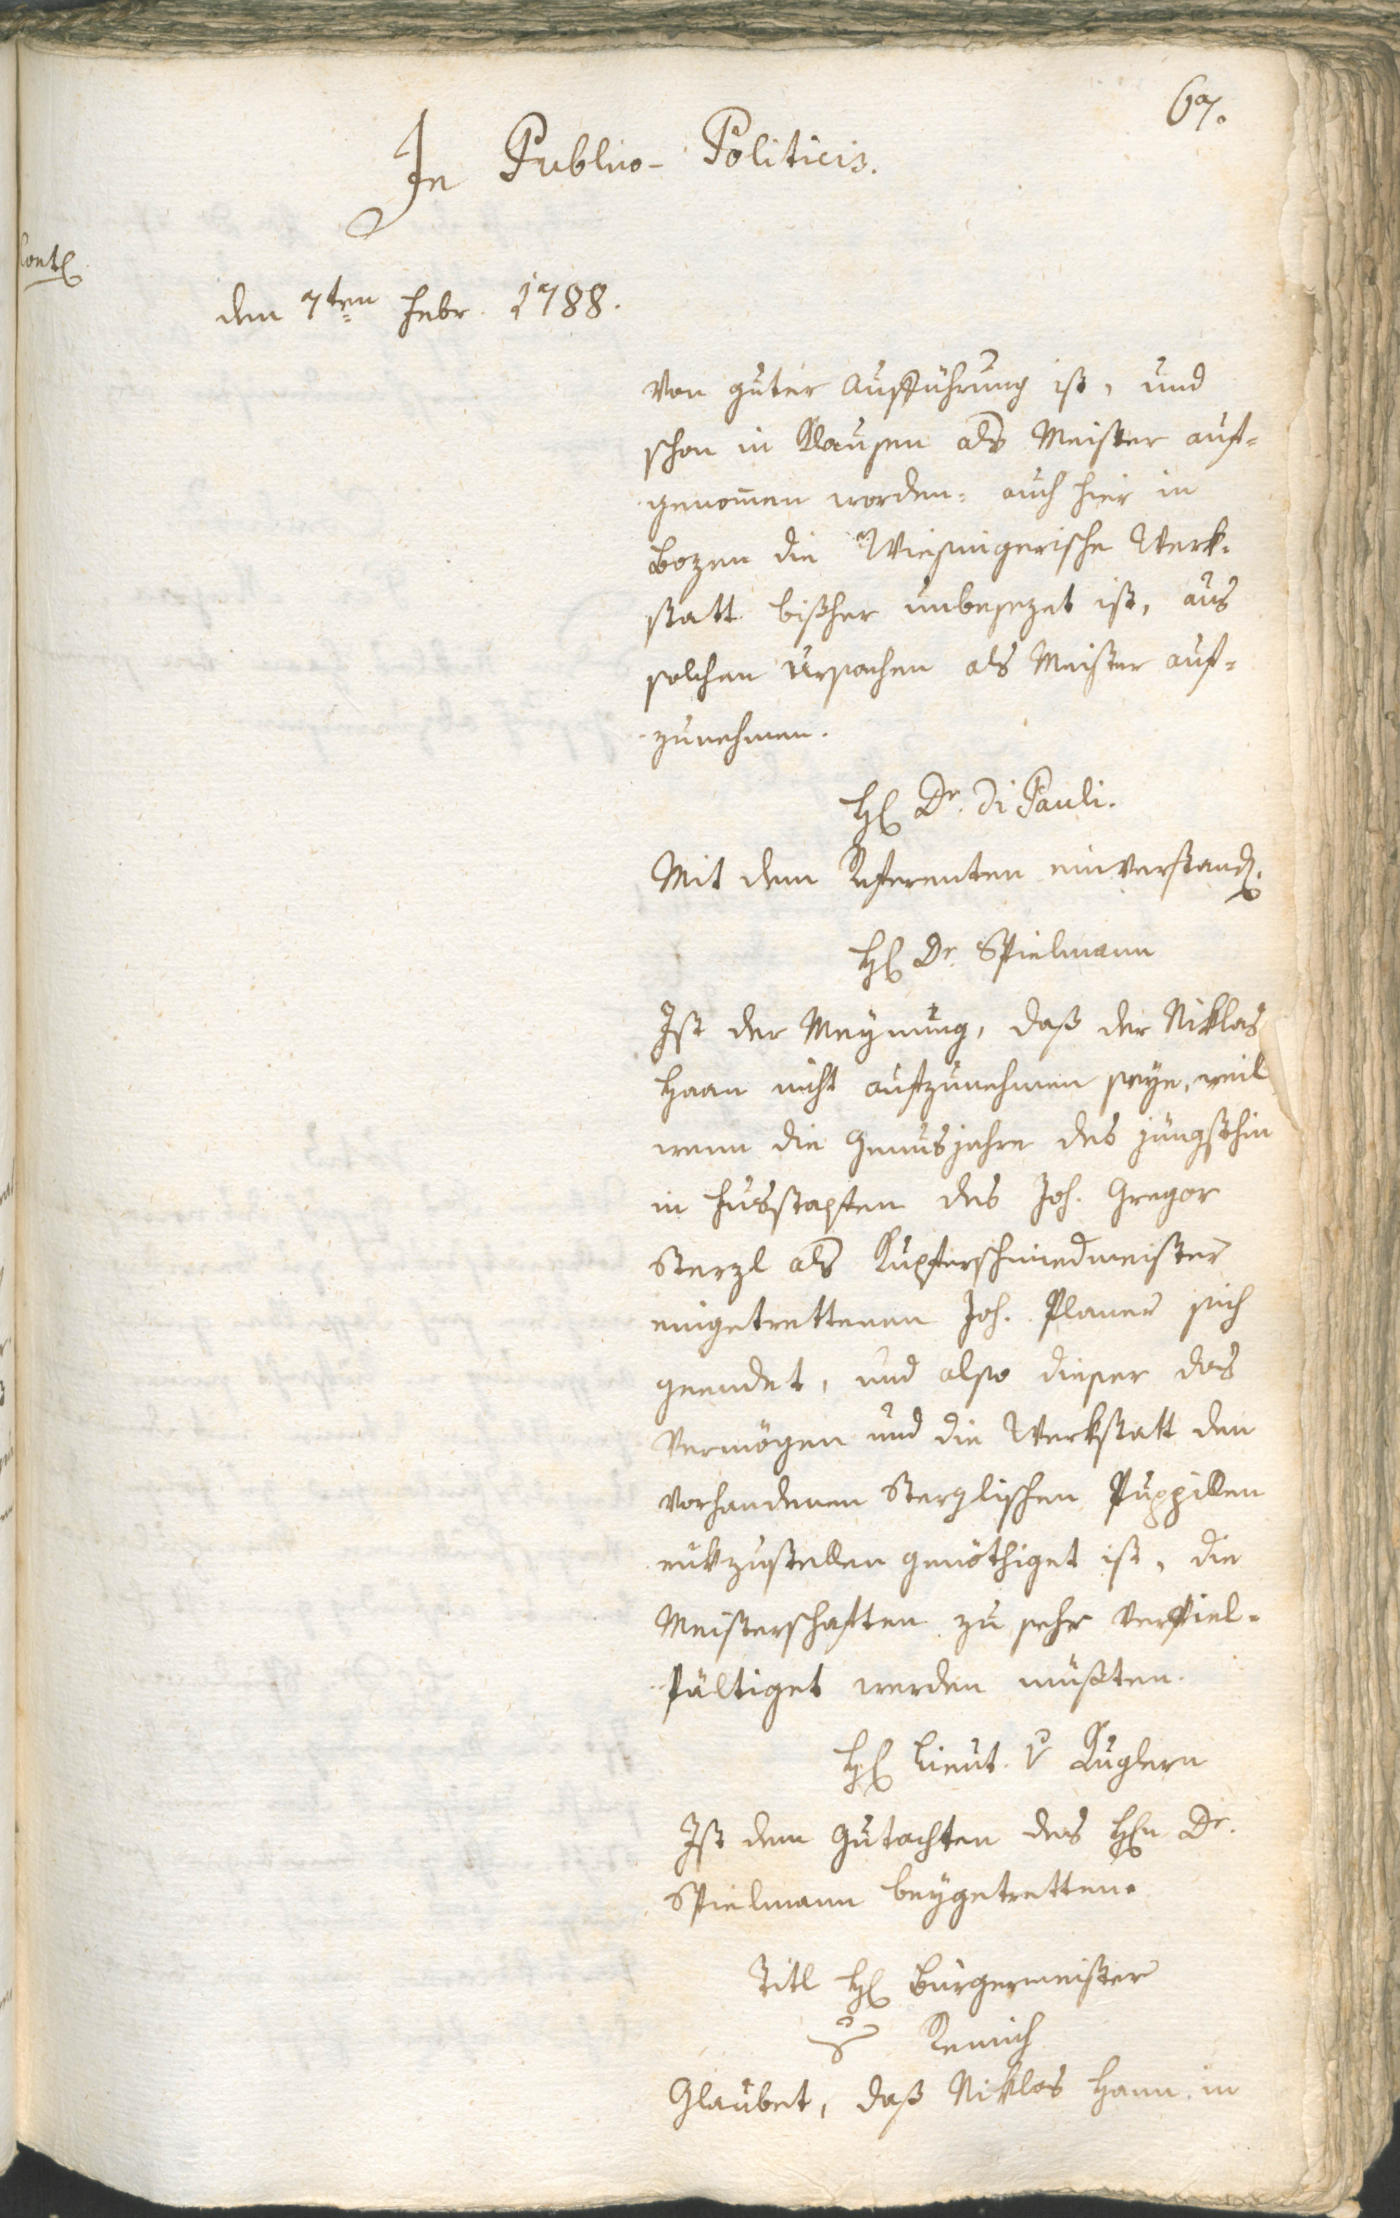 67.
In Publico-Politicis.
den 7ten Febr. 1788.
von guter Aufführung ist, und
schon in Klausen als Meister auf=
genommen worden: auch hier in
Bozen die Wiesingerische Werk=
statt bißher unbesezet ist, aus
solchen Ursachen als Meister auf=
zunehmen.
H Dr. Di Pauli.
Mit dem Referenten einverstand.
H Dr. Spielmann
Ist der Meynung, daß der Niklas
Haan nicht aufzunehmen seye, weil
wenn die Genusjahre des jüngsthin
in Fusstapfen des Joh. Gregor
Sterzl als Kupferschmiedmeister
eingetrettenen Joh. Planer sich
geendet, und also dieser das
Vermögen und die Werkstatt den
vorhandenen Sterzlischen Puppillen
rukzustellen genöthiget ist, die
Meisterschaften zu sehr verfiel=
fältiget werden müßten.
H Lieut. v Kuglern
Ist dem Gutachten des Hn Dr.
Spielmann beygetretten.
Titl H Bürgermeister
v Remich
Glaubet, daß Niklas Hann in